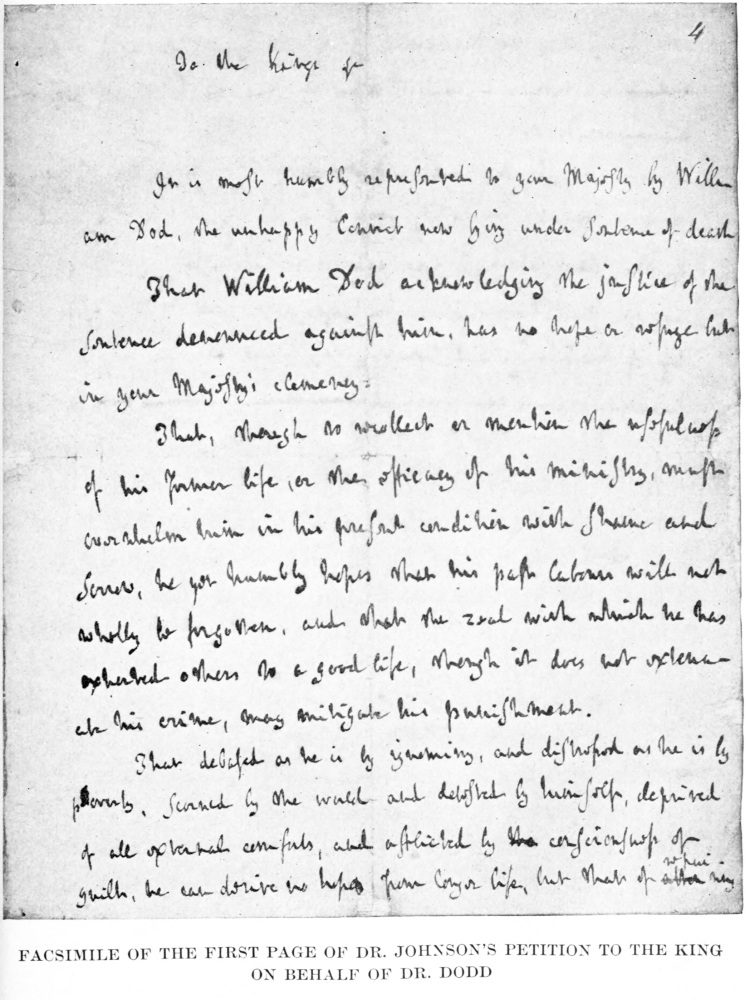 4
To the Kings
It is most humbly represented to your Majesty by Willi
am Dod, the unhappy Convict now lying under Sentence of death
That William Dod acknowledging the justice of the
Sentence denounced against him, has no hope or refuge but
in your Majesty's clemency.
That, though to recollect or mention the usefulness
of his former life, or the efficacy of his ministry, must
overwhelm him in his present condition with shame and
sorrow, he yet humbly hopes that his past labours will not
wholly be forgotten, and that the zeal with which he has
exhorted others to a good life, though it does not extenu-
ate his crime, may mitigate his punishment.
That debased as he is by ignominy, and distressed as he is by
poverty, scorned by the world and detested by himself, deprived
of all external comforts, and afflicted by consciousness of
guilt, he can derive no hopes from longer life, but that of repai-
ring
FACSIMILE OF THE FIRST PAGE OF DR. JOHNSON'S PETITION TO THE KING
ON BEHALF OF DR. DODD